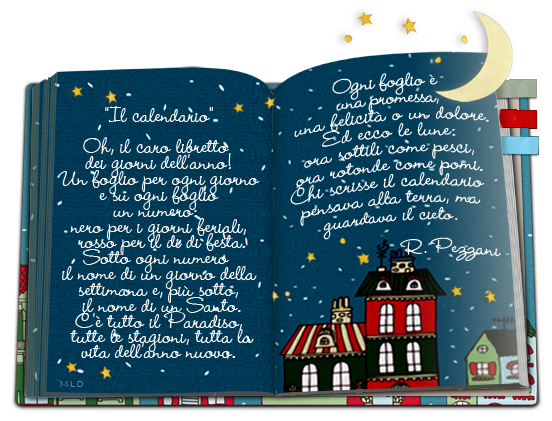 "Il calendario"
Oh, il caro libretto
dei giorni dell'anno!
Un foglio per ogni giorno
e su ogni foglio
un numero:
nero per i giorni feriali,
rosso per il dì di festa.
Sotto ogni numero
il nome di un giorno della
settimana e, più sotto,
il nome di un Santo.
C'è tutto il Paradiso,
tutte le stagioni, tutta la
vita dell'anno nuovo.
MLD
Ogni foglio è
una promessa,
una felicità o un dolore.
Ed ecco le lune:
ora sottili come pesci,
ora rotonde come pomi.
Chi scrisse il calendario
pensava alla terra, ma
guardava il cielo.
R. Pezzani